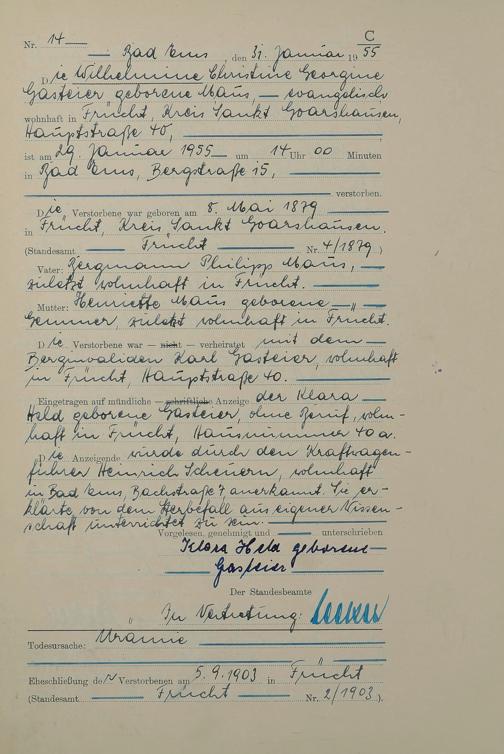 C
Nr. 14
Bad Ems, den 31. Januar 1955
Die Wilhelmine Christine Georgine
Gasteier geborene Maus, — evangelisch
wohnhaft in Frücht, Kreis Sankt Goarshausen,
Hauptstraße 40,
ist am 29. Januar 1955 um 14 Uhr 00 Minuten
in Bad Ems, Bergstraße 15,
verstorben.
Die Verstorbene war geboren am 8. Mai 1879
in Frücht, Kreis Sankt Goarshausen.
(Standesamt Frücht Nr. 4/1879)
Vater: Bergmann Philipp Maus,
zuletzt wohnhaft in Frücht.
Mutter: Henriette Maus geborene
Gemmer, zuletzt wohnhaft in Frücht.
Die Verstorbene war — nicht — verheiratet mit dem
Berginvaliden Karl Gasteier, wohnhaft
in Frücht, Hauptstraße 40.
Eingetragen auf mündliche — schriftliche Anzeige der Klara
Held geborene Gasteier, ohne Beruf, wohn-
haft in Frücht, Hausnummer 40a.
Die Anzeigende wurde durch den Kraftwagen-
führer Heinrich Scheuern, wohnhaft
in Bad Ems, Bachstraße 7 anerkannt. Sie er-
klärte, von dem Sterbefall aus eigener Wissen-
schaft unterrichtet zu sein.
Vorgelesen, genehmigt und unterschrieben
Klara Held geborene
Gasteier
Der Standesbeamte
In Vertretung:
Todesursache: Urämie
Eheschließung der Verstorbenen am 5.9.1903 in Frücht
(Standesamt Frücht Nr. 2/1903).